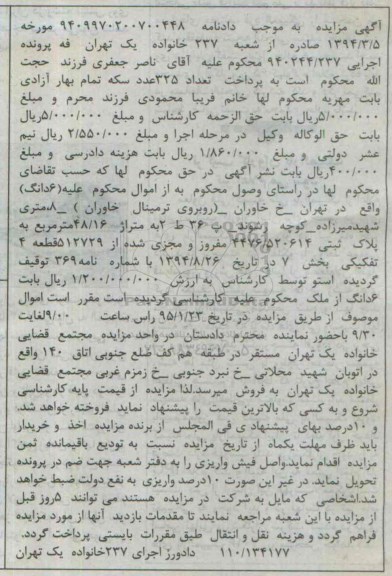 آگهی مزایده به موجب دادنامه ۹۴۰۹۹۷۰۲۰۰۷۰۰۴۴۸ مورخه
۱۳۹۴/۳/۵ صادره از شعبه ۲۳۷ خانواده یک تهران فه پرونده
اجرایی ۹۴۰۲۴۴/۲۳۷ محکوم علیه آقای ناصر جعفری فرزند حجت
الله محکوم است به پرداخت تعداد ۳۲۵عدد سکه تمام بهار آزادی
بابت مهریه محکوم لها خانم فریبا محمودی فرزند محرم و مبلغ
۵/۰۰۰/۰۰۰ریال بابت حق الزحمه کارشناس و مبلغ ۵/۰۰۰/۰۰۰ریال
بابت حق الوکاله وکیل در مرحله اجرا و مبلغ ۲/۵۵۰/۰۰۰ ریال نیم
عشر دولتی و مبلغ ۱/۸۶۰/۰۰۰ ریال بابت هزینه دادرسی و مبلغ
۴۰۰/۰۰۰ریال بابت نشر آگهی در حق محکوم لها که حسب تقاضای
محکوم لها در راستای وصول محکوم به از اموال محکوم علیه(۶دانگ)
واقع در تهران _خ خاوران _(روبروی ترمینال خاوران ) _۸متری
شهیدمیرزاده_کوچه رشوند _پ ۳۶ ط ۲به متراژ ۴۸/۱۶مترمربع به
پلاک ثبتی ۴۴۷۶/۵۲۰۶۱۴ مفروز و مجزی شده از ۵۱۲۷۲۹قطعه ۴
تفکیکی بخش ۷ در تاریخ ۱۳۹۴/۸/۲۶ با شماره نامه۳۶۹ توقیف
گردیده استو توسط کارشناس به ارزش ۱/۲۰۰/۰۰۰/۰۰۰ ریال بابت
۶دانگ از ملک محکوم علیه کارشناسی گردیده است مقرر است اموال
موصوف از طریق مزایده در تاریخ ۹۵/۱/۲۳ راس ساعت ۹/۰۰لغایت
۹/۳۰ باحضور نماینده محترم دادستان در واحد مزایده مجتمع قضایی
خانواده یک تهران مستقر در طبقه هم کف ضلع جنوبی اتاق ۱۴۰ واقع
در اتوبان شهید محلاتی _خ نبرد جنوبی _خ زمزم غربی مجتمع قضایی
خانواده یک تهران به فروش میرسد.لذا مزایده از قیمت پایه کارشناسی
شروع و به کسی که بالاترین قیمت را پیشنهاد نماید فروخته خواهد شد.
و ۱۰درصد بهای پیشنهاد ی فی المجلس از برنده مزایده اخذ و خریدار
باید ظرف مهلت یکماه از تاریخ مزایده نسبت به تودیع باقیمانده ثمن
مزایده اقدام نماید.واصل فیش واریزی را به دفتر شعبه جهت ضم در پرونده
تحویل نماید. در غیر این صورت ۱۰درصد واریزی به نفع دولت ضبط خواهد
شد.اشخاصی که مایل به شرکت در مزایده هستند می توانند ۵روز قبل
از مزایده با این شعبه مراجعه نمایند تا مقدمات بازدید آنها از مورد مزایده
فراهم گردد و هزینه نقل و انتقال طبق مقررات بایستی پرداخت گردد.
۱۱۰/۱۳۴۱۷۷ دادورز اجرای ۲۳۷خانواده یک تهران